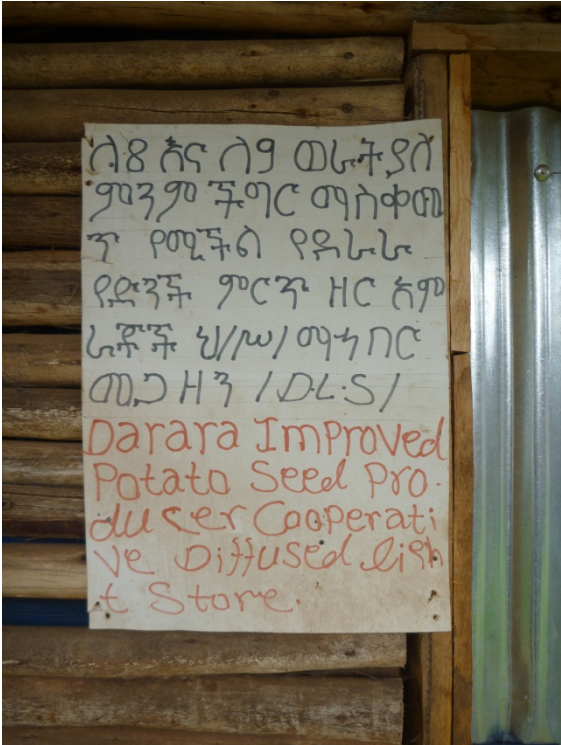 ለ8 እና ለ9 ወራት ያለ
ምንም ችግር ማስቀመ
ጥ የሚችል የደራራ
የድንች ምርጥ ዘር አም
ራቾች ህ/ሥ/ ማኅበር
መጋዘን /D.L.S/
Darara Improved
Potato Seed Pro-
ducer Cooperati
ve Diffused ligh
t Store.